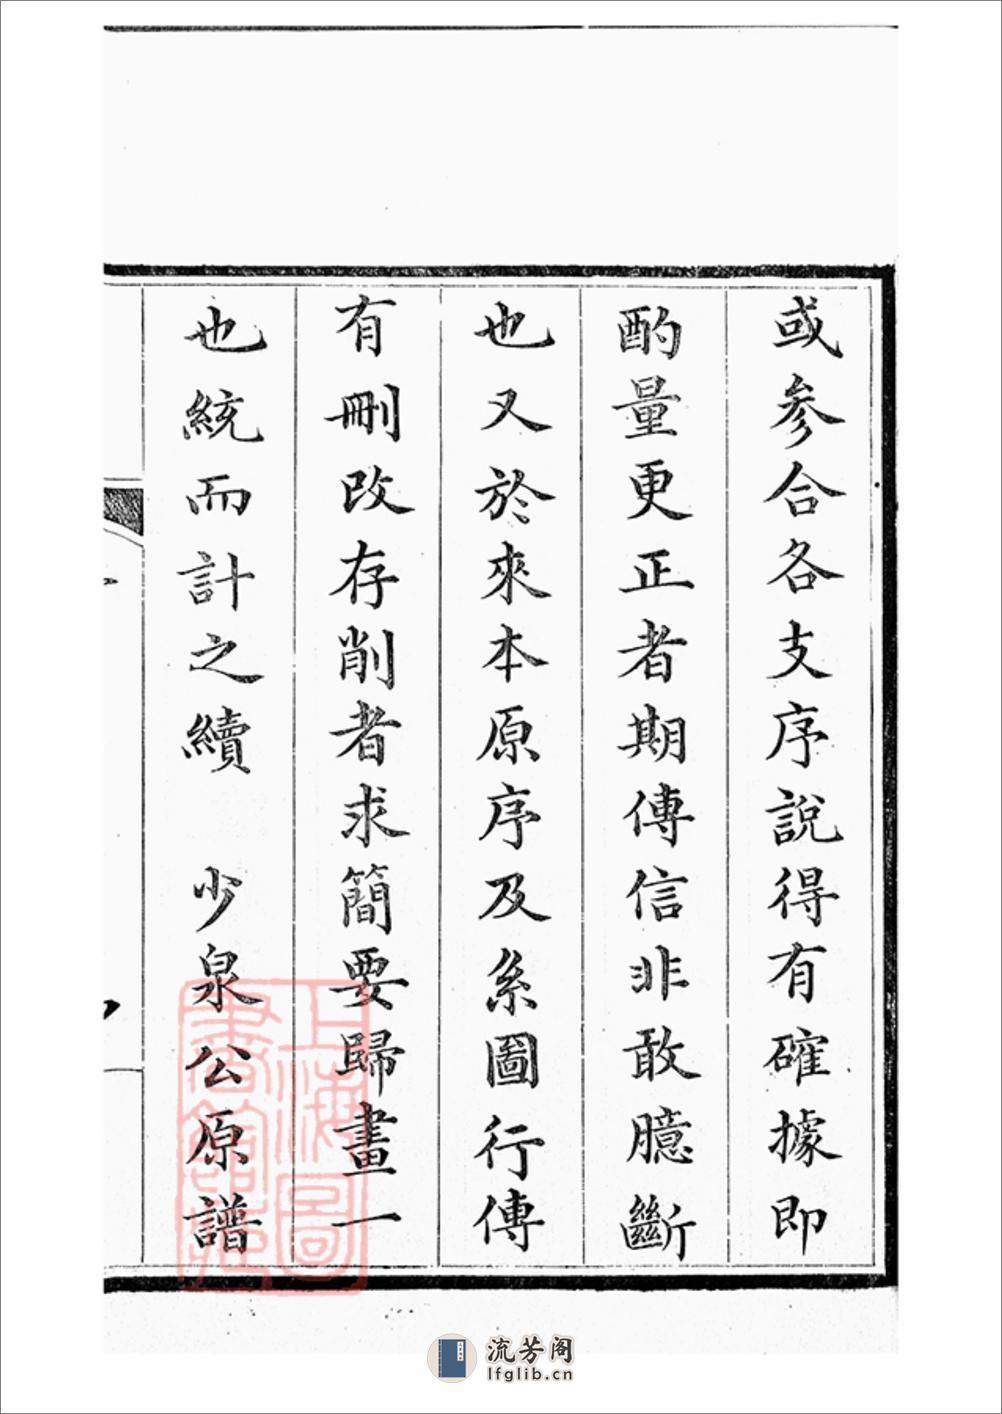 或参合各支序說得有確據即
酌量更正者期傳信非敢臆斷
也又於來本原序及系圖行傳
有刪改存削者求簡要歸畫一
也統而計之續　少泉公原譜
上海圖書館藏
流芳阁
lfglib.cn